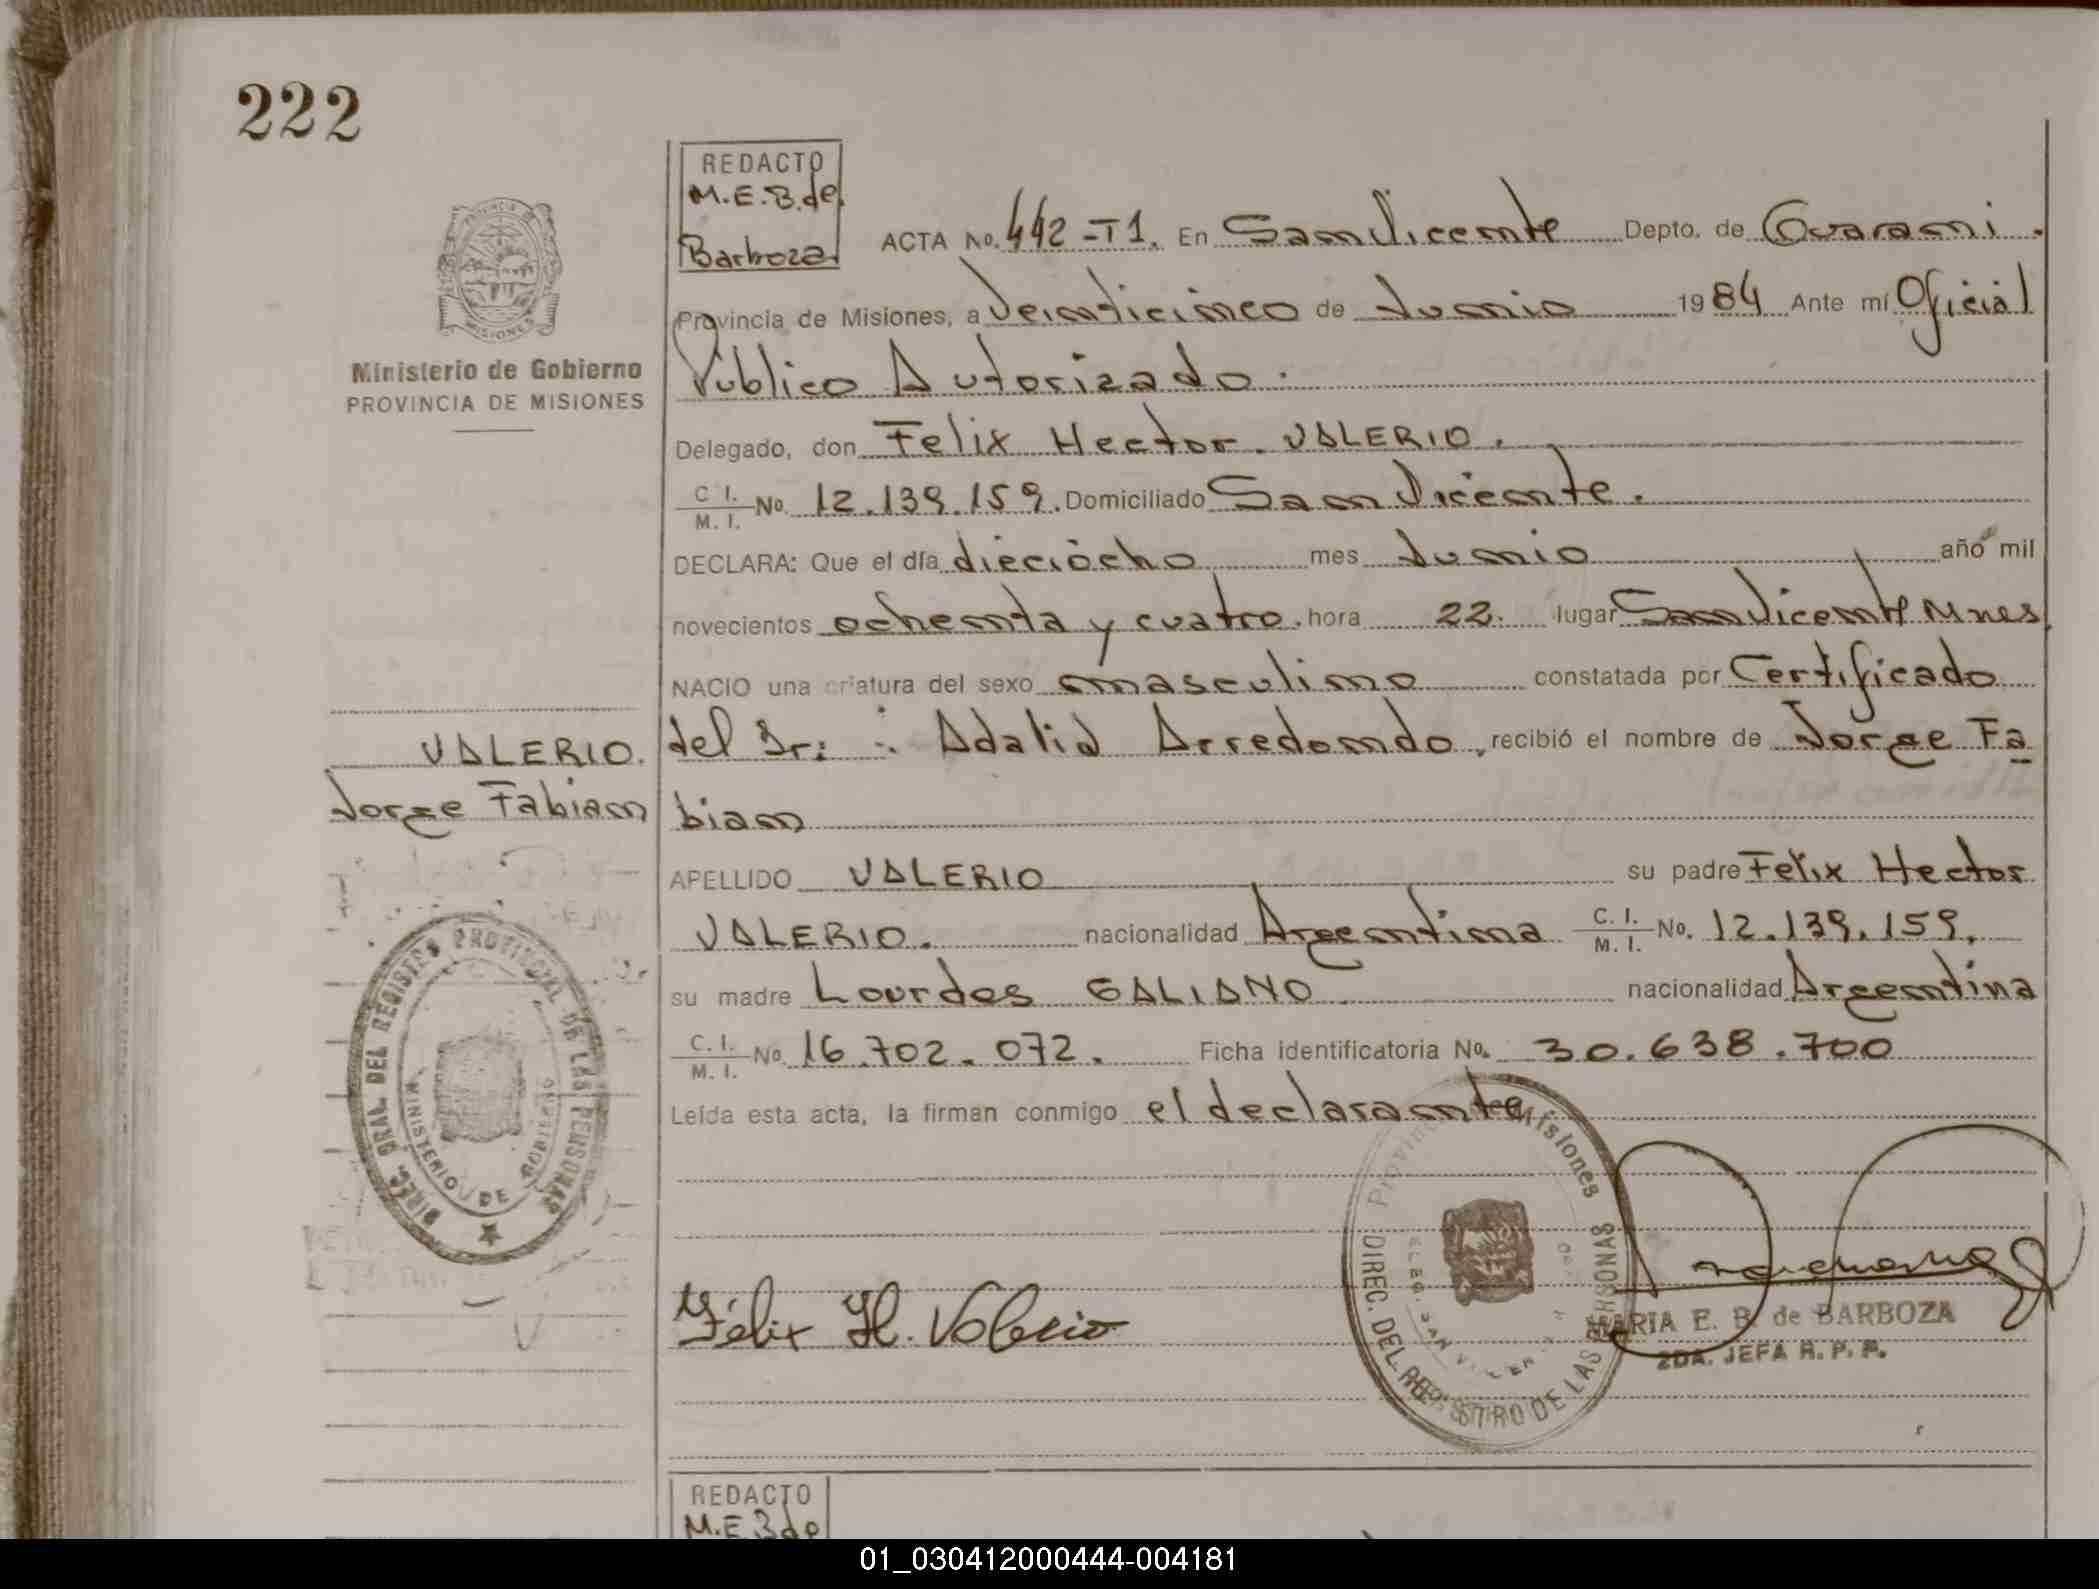 222
REDACTO
M.E.B. de
Barboza
ACTA No. 442-T1. En San Vicente Depto. de Guarani.
Provincia de Misiones, a Veinticinco de Junio 1984 Ante mí Oficial
Publico Autorizado.
Delegado, don Felix Hector VALERIO.
C. I. / M. I. No. 12.139.159. Domiciliado San Vicente.
DECLARA: Que el día dieciocho mes Junio año mil
novecientos ochenta y cuatro. hora 22. lugar San Vicente Mnes
NACIO una criatura del sexo masculino constatada por Certificado
del Dr: Adalid Arredondo, recibió el nombre de Jorge Fa
bian
APELLIDO VALERIO su padre Felix Hector
VALERIO. nacionalidad Argentina C. I. / M. I. No. 12.139.159.
su madre Lourdes GALIANO nacionalidad Argentina
C. I. / M. I. No. 16.702.072. Ficha identificatoria No. 30.638.700
Leída esta acta, la firman conmigo el declarante
Ministerio de Gobierno
PROVINCIA DE MISIONES
MISIONES
VALERIO.
Jorge Fabian
DIREC. GRAL. DEL REGISTRO PROVINCIAL DE LAS PERSONAS
MINISTERIO DE GOBIERNO
Provincia Misiones
DIREC. DEL REGISTRO DE LAS PERSONAS
Félix H. Valerio
MARIA E. B. de BARBOZA
2DA. JEFA R. P. P.
REDACTO
M.E.B de
01_030412000444-004181